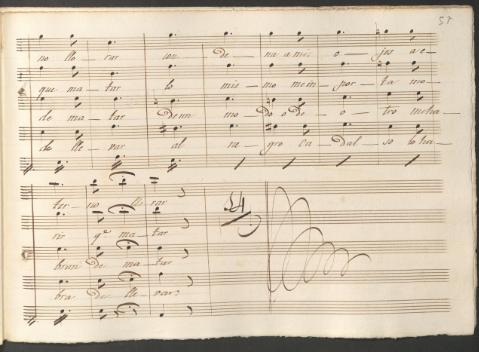 57
no llo — rar con — de — na a mis — o — jos a e —
que ma — tar lo mis — mo me im — por — ta mo —
de ma — tar de un mo — do o de o — tro me ha —
de lle — var al ne — gro ca — dal — so lo ha —
ter — no llo — rar
rir qe ma — tar
bran de ma — tar
bra de lle — var?